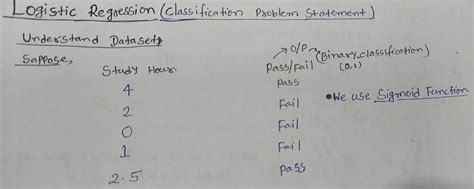 Logistic Regression (Classification Problem Statement)
Understand Datasets
Sappose,
→ O/P → (Binary classification)
Study Hour Pass/Fail (0,1)
4 Pass
2 Fail • We use Sigmoid Function
0 Fail
1 Fail
2.5 Pass